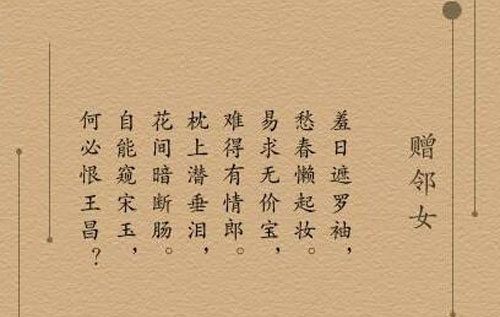 赠邻女
羞日遮罗袖，
愁春懒起妆。
易求无价宝，
难得有情郎。
枕上潜垂泪，
花间暗断肠。
自能窥宋玉，
何必恨王昌？